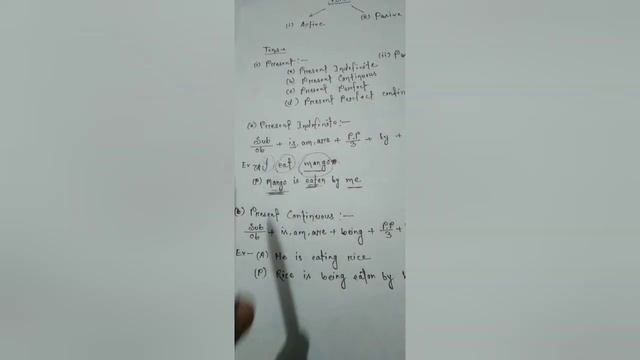 (i) Active (ii) Passive
Tense
(i) Present :-
(a) Present Indefinite
(b) Present Continuous
(c) Present Perfect
(d) Present Perfect Contin
(a) Present Indefinite :-
Sub/ob + is, am, are + P.P/3 + by +
Ex - (A) I eat mango
(P) Mango is eaten by me
(b) Present Continuous :-
Sub/ob + is, am, are + being + P.P/3 +
Ex - (A) He is eating rice
(P) Rice is being eaten by